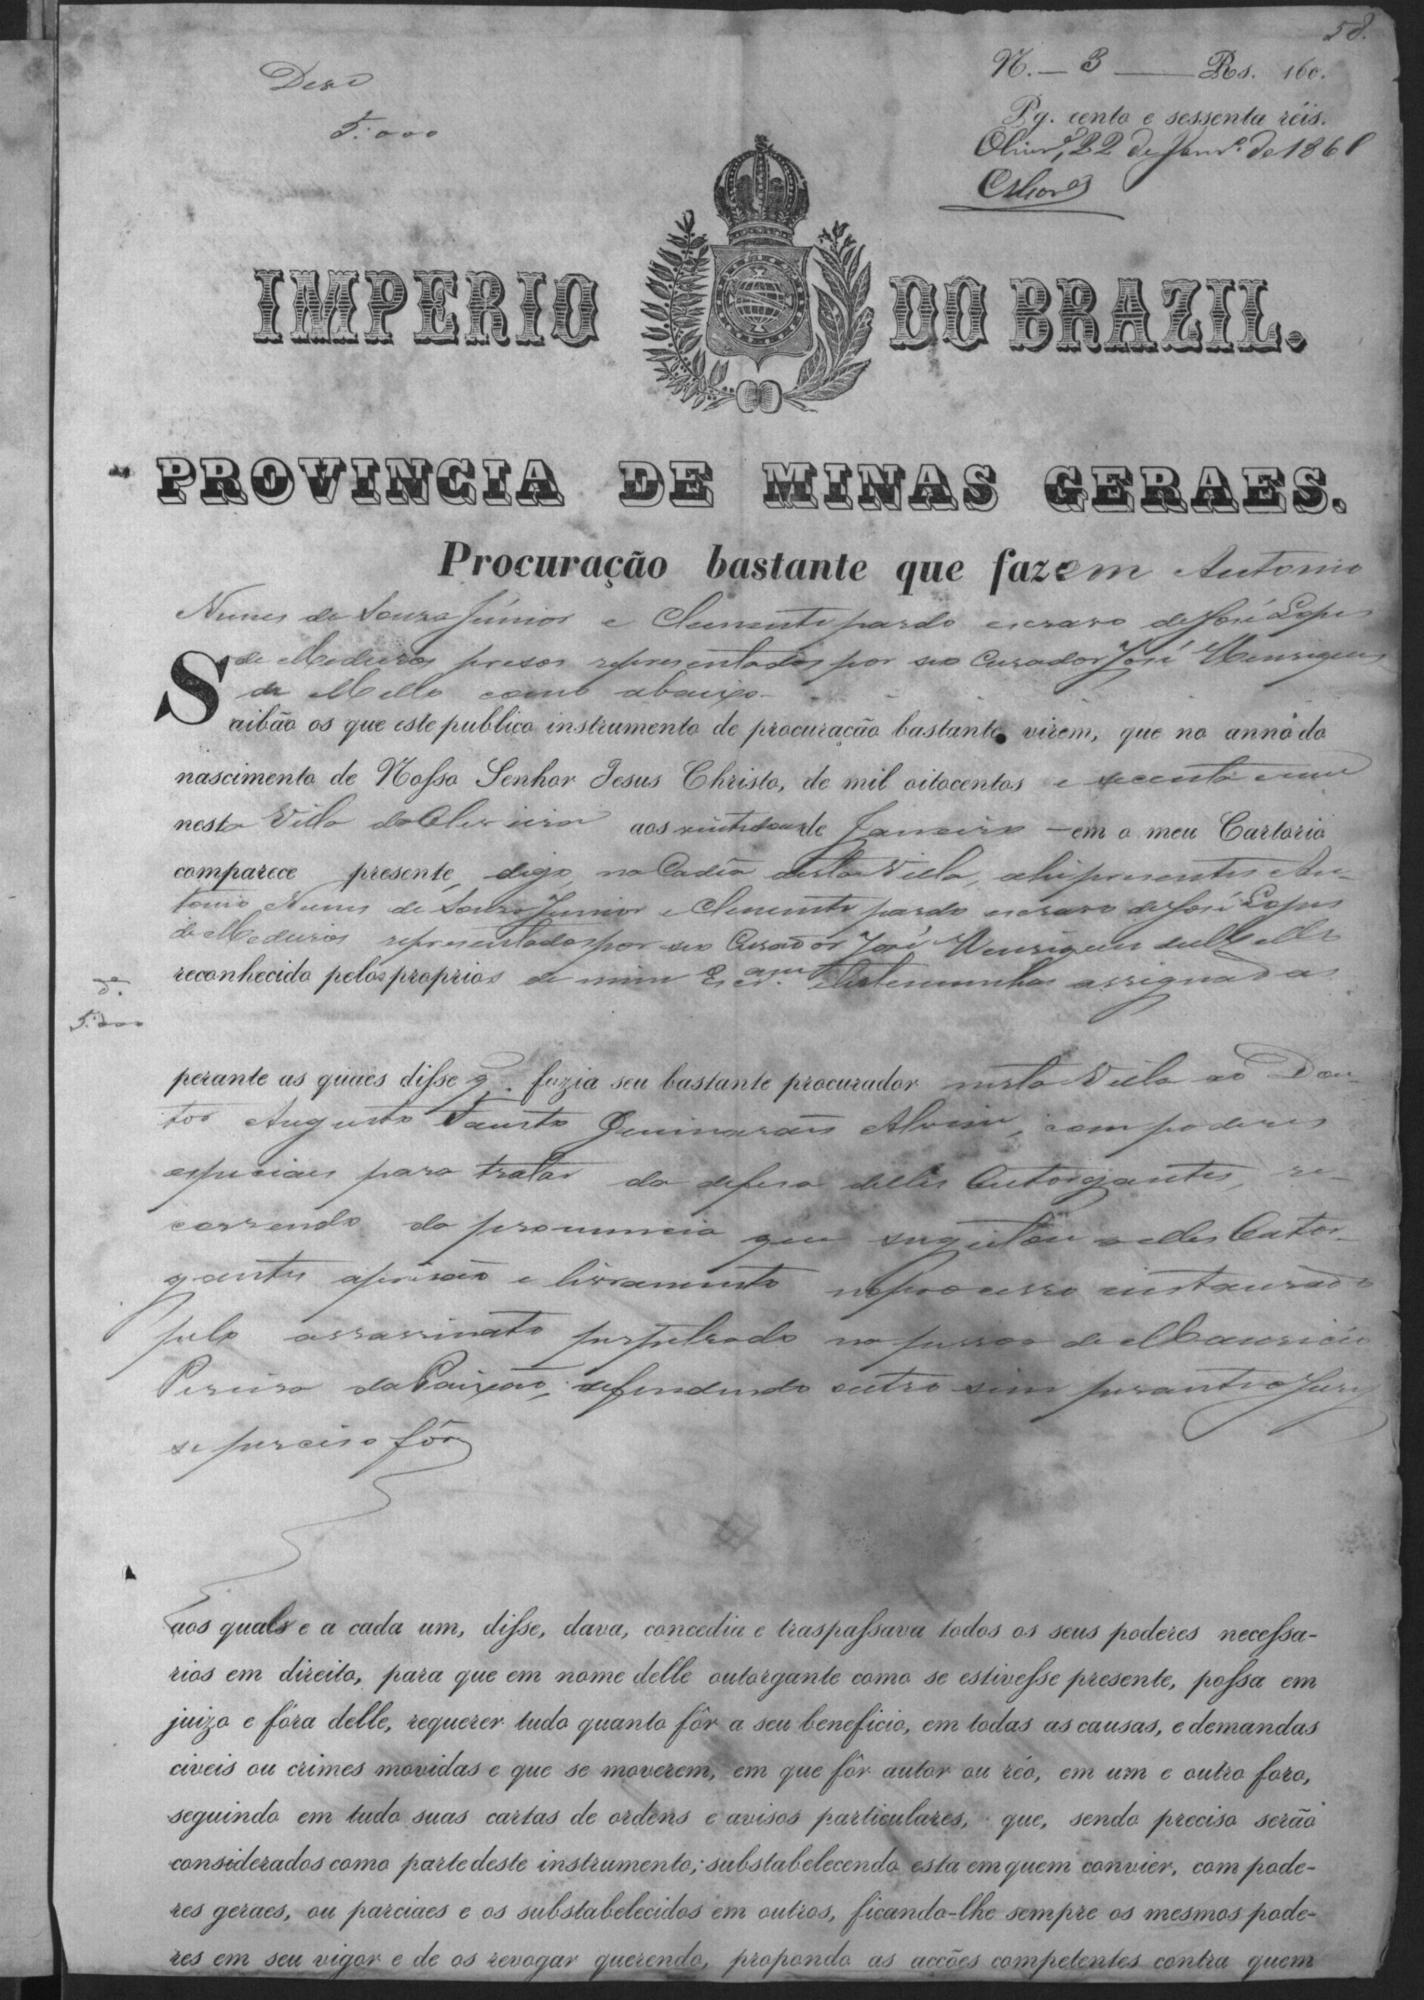 58.
N. — 3 — Rs. 160.
Pg. cento e sessenta réis.
Olivrª, 22 de Janrº. de 1861
5:000
IMPERIO DO BRAZIL.
PROVINCIA DE MINAS GERAES.
Procuração bastante que fazem Antonio
Nunes de Souza Júnior e Clemente pardo escravo de José Lopes
de Medeiros presos representados por seo Curador José Henriques
de Mello como abaixo
Saibão os que este publico instrumento de procuração bastante virem, que no anno do
nascimento de Nosso Senhor Jesus Christo, de mil oitocentos e secenta e um
nesta Villa da Oliveira aos vinte dous de Janeiro — em o meu Cartorio
comparece presente, digo, na Cadêa desta Villa, ahi presentes An-
tonio Nunes de Souza Junior e Clemente pardo escravo de José Lopes
de Medeiros representados por seo Curador José Henriques de Mello
reconhecido pelos proprios de mim Escr.am e testemunhas assignadas
5:000
perante as quaes disse q. fazia seu bastante procurador nesta Villa ao Dou-
tor Augusto Fausto Guimarães Alvim, com poderes
especiaes para tratar da defesa delles Outorgantes, re-
correndo da pronuncia que sugeitou a elles Outor-
gantes a prisão e livramento no processo instaurado
pelo assassinato perpetrado na pessoa de Mauricio
Pereira da Paixão, defendendo outro sim perante o Jury
se preciso fôr
aos quaes e a cada um, disse, dava, concedia e traspassava todos os seus poderes necessa-
rios em direito, para que em nome delle outorgante como se estivesse presente, possa em
juizo e fóra delle, requerer tudo quanto fôr a seu beneficio, em todas as causas, e demandas
civeis ou crimes movidas e que se moverem, em que fôr autor ou réo, em um e outro foro,
seguindo em tudo suas cartas de ordens e avisos particulares, que, sendo preciso serão
considerados como parte deste instrumento; substabelecendo esta em quem convier, com pode-
res geraes, ou parciaes e os substabelecidos em outros, ficando-lhe sempre os mesmos pode-
res em seu vigor e de os revogar querendo, propondo as acções competentes contra quem